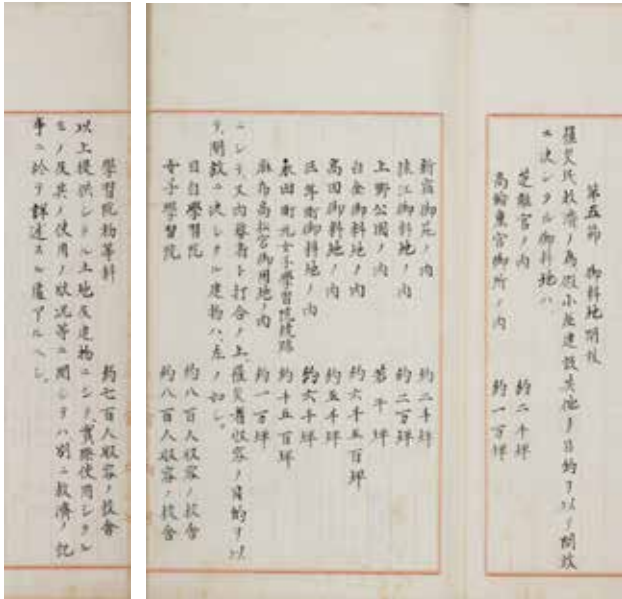 第五節　御料地開放
罹災民救済ノ為假小屋建設其他ノ目的ヲ以テ開放
ニ決シタル御料地ハ、
芝離宮ノ内　約二千坪
高輪東宮御所ノ内　約一万坪
新宿御苑ノ内　約二千坪
猿江御料地ノ内　約二万坪
上野公園ノ内　若干坪
白金御料地ノ内　約六千五百坪
高田御料地ノ内　約五千坪
三年町御料地ノ内　約六千坪
永田町元女子學習院焼跡　約千五百坪
麻布高松宮御用地ノ内　約一万坪
ニシテ又内務省ト打合ノ上、罹災者收容ノ目的ヲ以
テ開放ニ決シタル建物ハ左ノ如シ。
目白學習院　約八百人收容ノ校舎
女子學習院　約八百人收容ノ校舎
學習院初等科　約七百人收容ノ校舎
以上提供シタル土地及建物ニシテ、實際使用シタル
モノ及其ノ使用ノ状況等ニ関シテハ別ニ救濟ノ記
事ニ於テ詳述スル處アルヘシ。